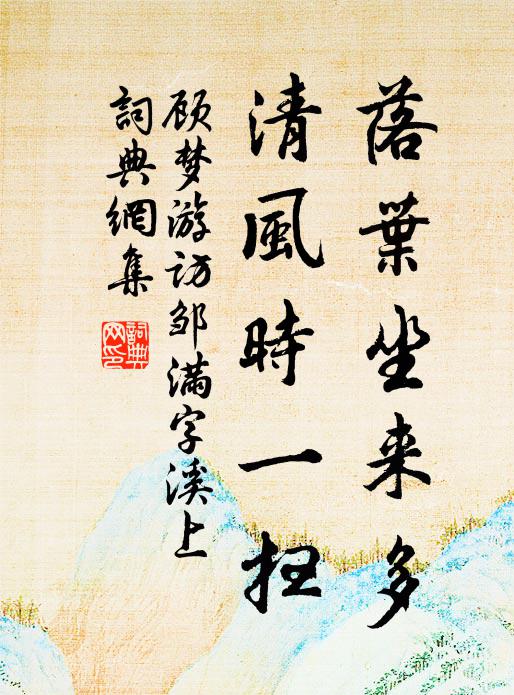 落葉坐来多
清風時一扫
顾梦游访邹满字溪上
詞典網集
詞典网印